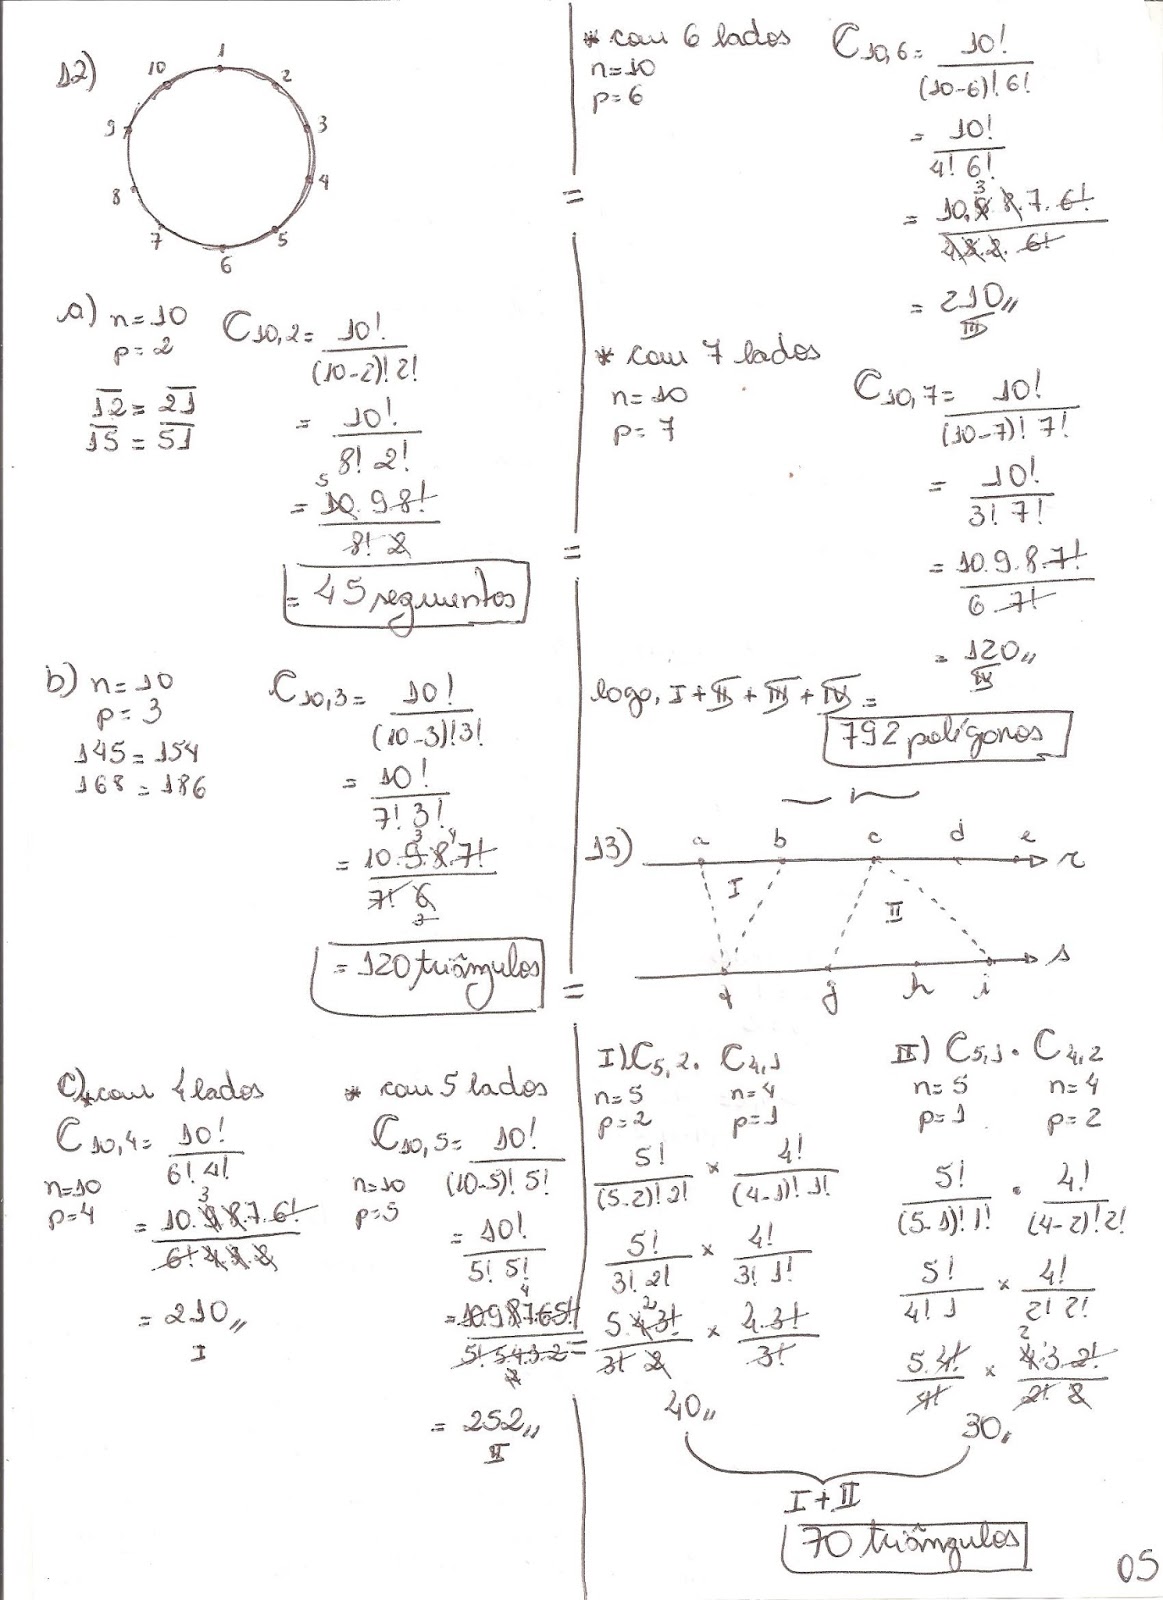 12)
1
2
3
4
5
6
7
8
9
10
a) n=10
p=2
12 = 21
15 = 51
C10,2= 10!
(10-2)! 2!
= 10!
8! 2!
5
= 10. 9 8!
8! 2
= 45 segmentos
b) n=10
p=3
145=154
168=186
C10,3= 10!
(10-3)! 3!
= 10!
7! 3!
3 4
= 10.9.8.7!
7! 6
= 120 triângulos
c) * com 4 lados
C10,4= 10!
6! 4!
n=10
p=4
3
= 10.9.8.7.6!
6! 4 3 2
= 210,,
I
* com 5 lados
C10,5= 10!
(10-5)! 5!
n=10
p=5
= 10!
5! 5!
4
= 10 9 8 7 6 5!
5! 5 4 3 2
2
= 252,,
II
* com 6 lados
n=10
p=6
C10,6= 10!
(10-6)! 6!
= 10!
4! 6!
3
= 10.9 8.7. 6!
4 3. 2. 6!
= 210,,
III
* com 7 lados
n=10
p=7
C10,7= 10!
(10-7)! 7!
= 10!
3! 7!
= 10.9.8.7!
6 7!
= 120,,
IV
logo, I + II + III + IV =
792 polígonos
13)
a b c d e r
I
II
f g h i s
I) C5,2. C4,1
n=5 n=4
p=2 p=1
5! × 4!
(5-2)! 2! (4-1)! 1!
5! × 4!
3! 2! 3! 1!
2
5.4 3! × 4.3!
3! 2 3!
40,,
II) C5,1 . C4,2
n=5 n=4
p=1 p=2
5! . 4!
(5-1)! 1! (4-2)! 2!
5! × 4!
4! 1 2! 2!
2
5.4! × 4.3.2!
4! 2! 2
30,,
I + II
70 triângulos
05